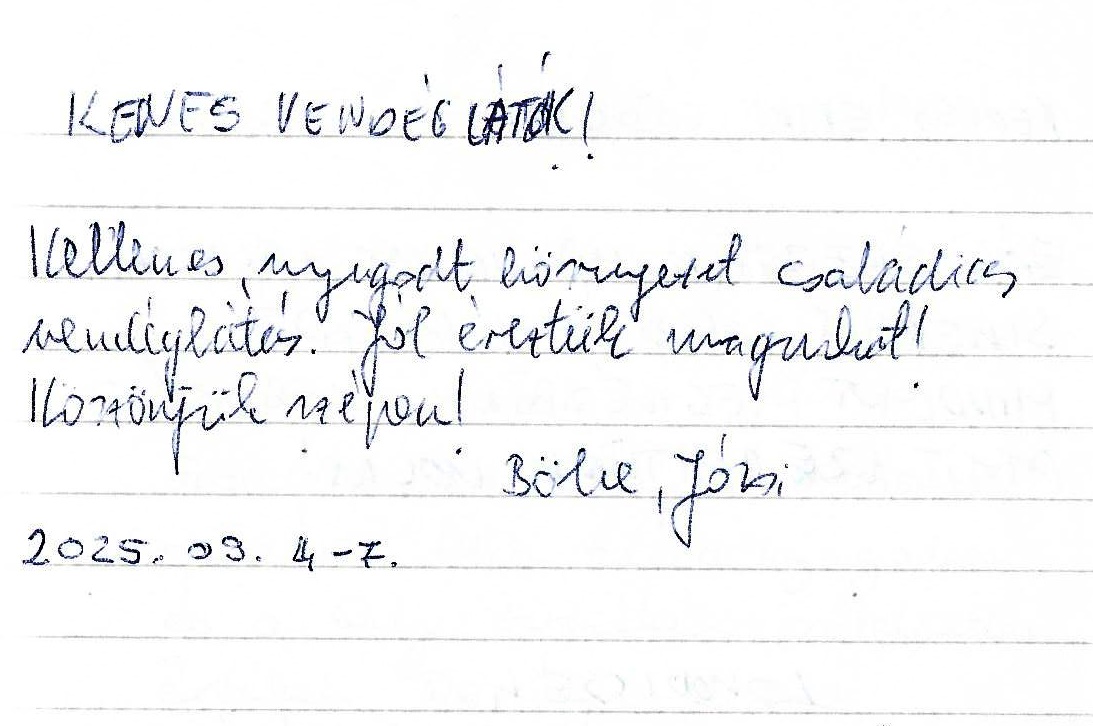 KEDVES VENDÉGLÁTÓK!
Kellemes, nyugodt környezet családias
vendéglátás. Jól éreztük magunkat!
Köszönjük szépen!
Böke, Józsi
2025. 09. 4-7.